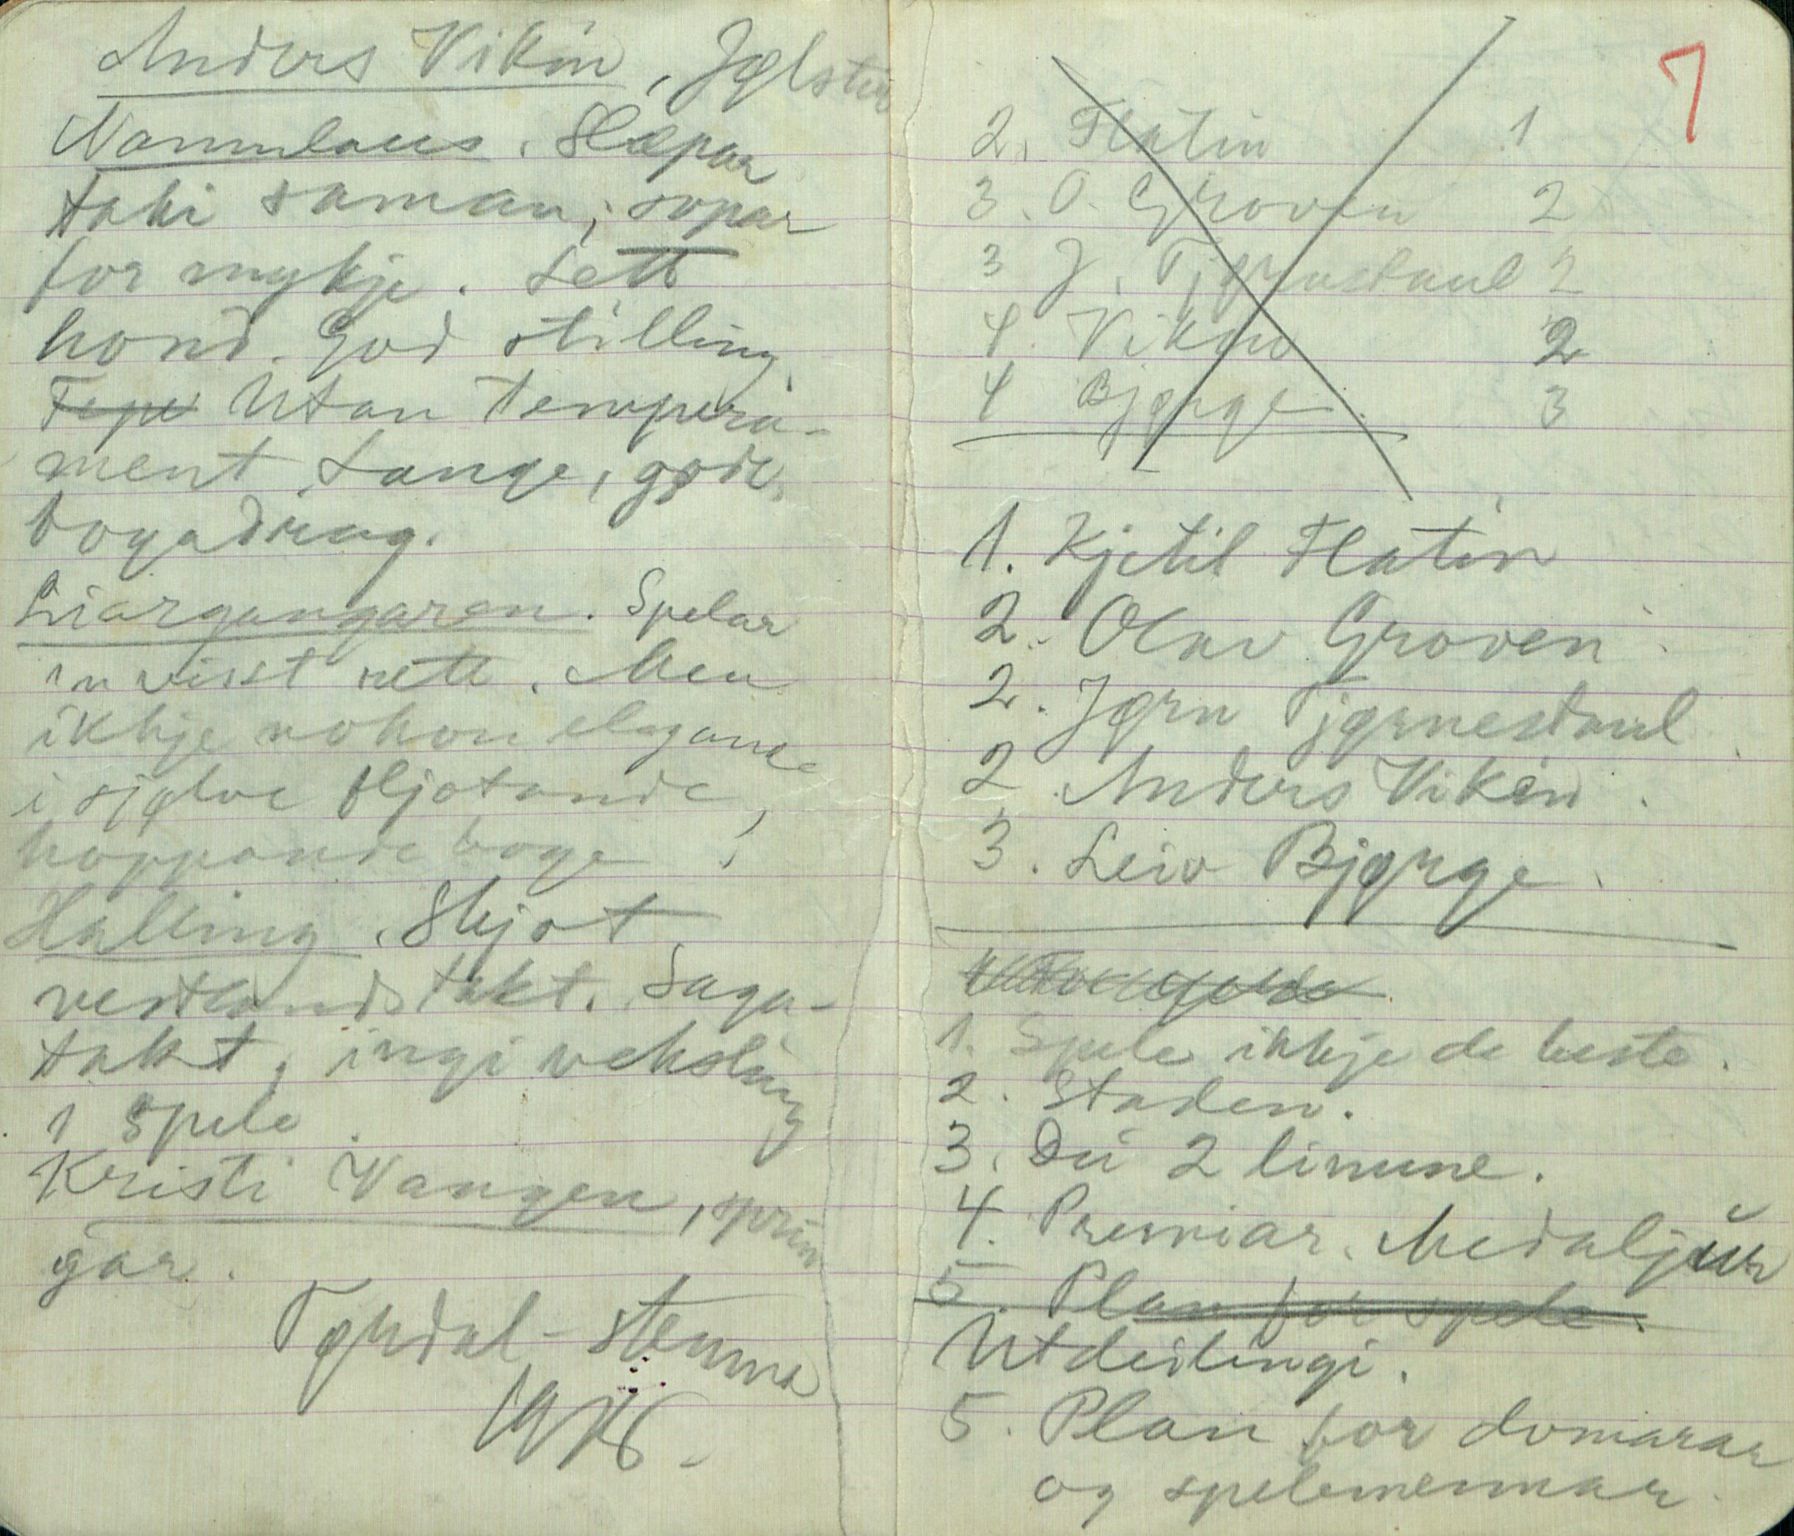 Anders Vikøn, Jølster
Namnlaus. Slæpar
taki saman; sopar
for mykje. Lett
hond. God stilling
Utan tempera-
ment. Lange, gode
bogadrag.
Liargangaren. Spelar
visst rett. Men
ikkje nokon elegance
i sjølve fljotande,
hoppande boge.
Halling. Skjot
vestlandstakt. Saga-
takt, ingi veksling
i spele.
Kristi Vangen, sprin
gar.
Tørdal-stemma
7
2. Flatin 1
3. O. Groven 2
3 J. Tjørnestaul 2
4. Vikøn 2
4 Bjørge 3
1. Kjetil Flatin
2. Olav Groven
2. Jørn Tjørnestaul
2. Anders Vikøn.
3. Leiv Bjørge.
1. Spele ikkje de beste.
2. Staden.
3. Dei 2 linune.
4. Premiar. Medaljur
5. Plan for spele.
Utdeilingi.
5. Plan for domarar
og spelemennar.